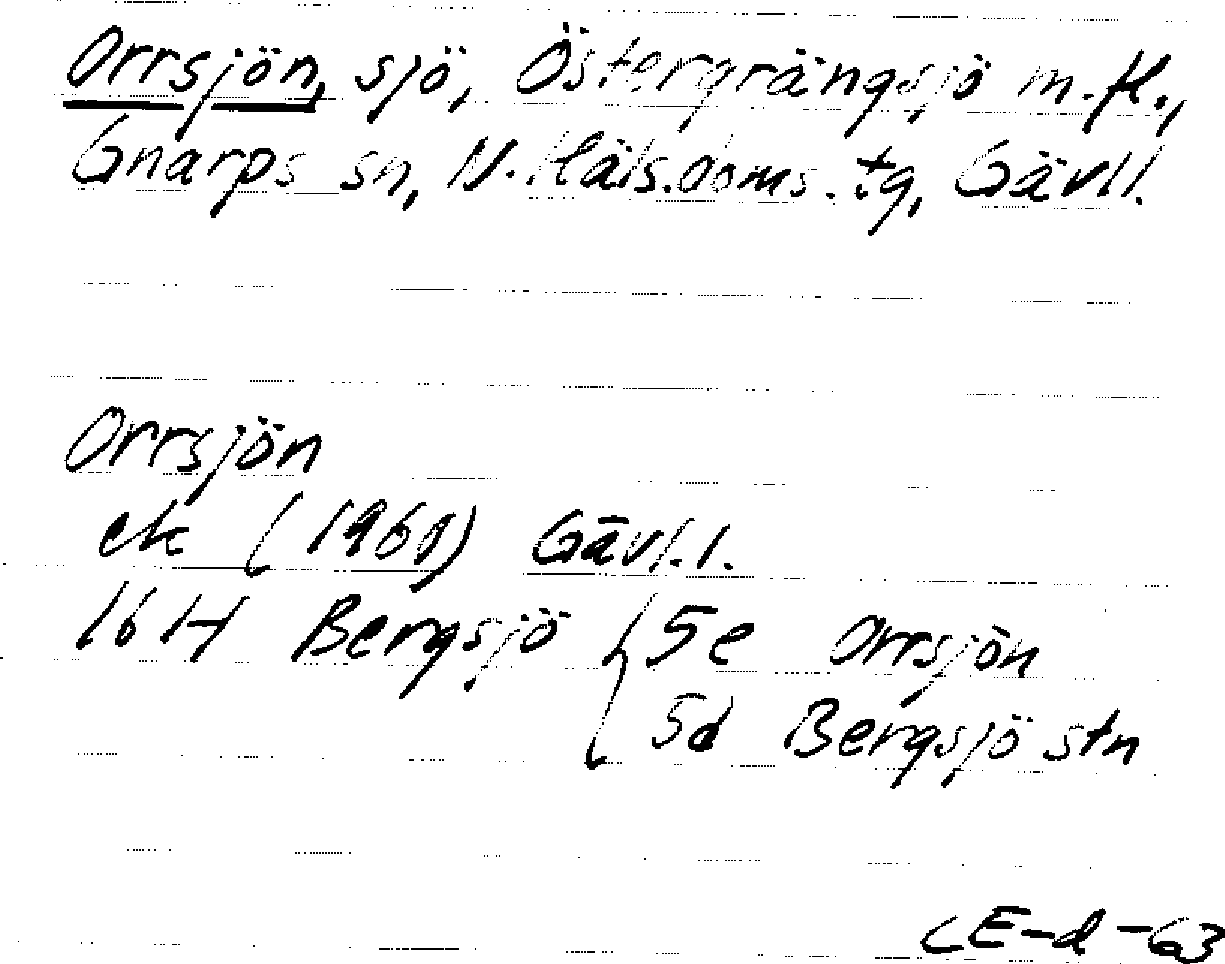 Orrsjön, sjö, Östergrängsjö m.fl.,
Gnarps sn, N. Häls. doms. tg, Gävl.l.
Orrsjön
ek (1961) Gävl.l.
16 H Bergsjö { 5e Orrsjön
5d Bergsjö stn
CE-d-63